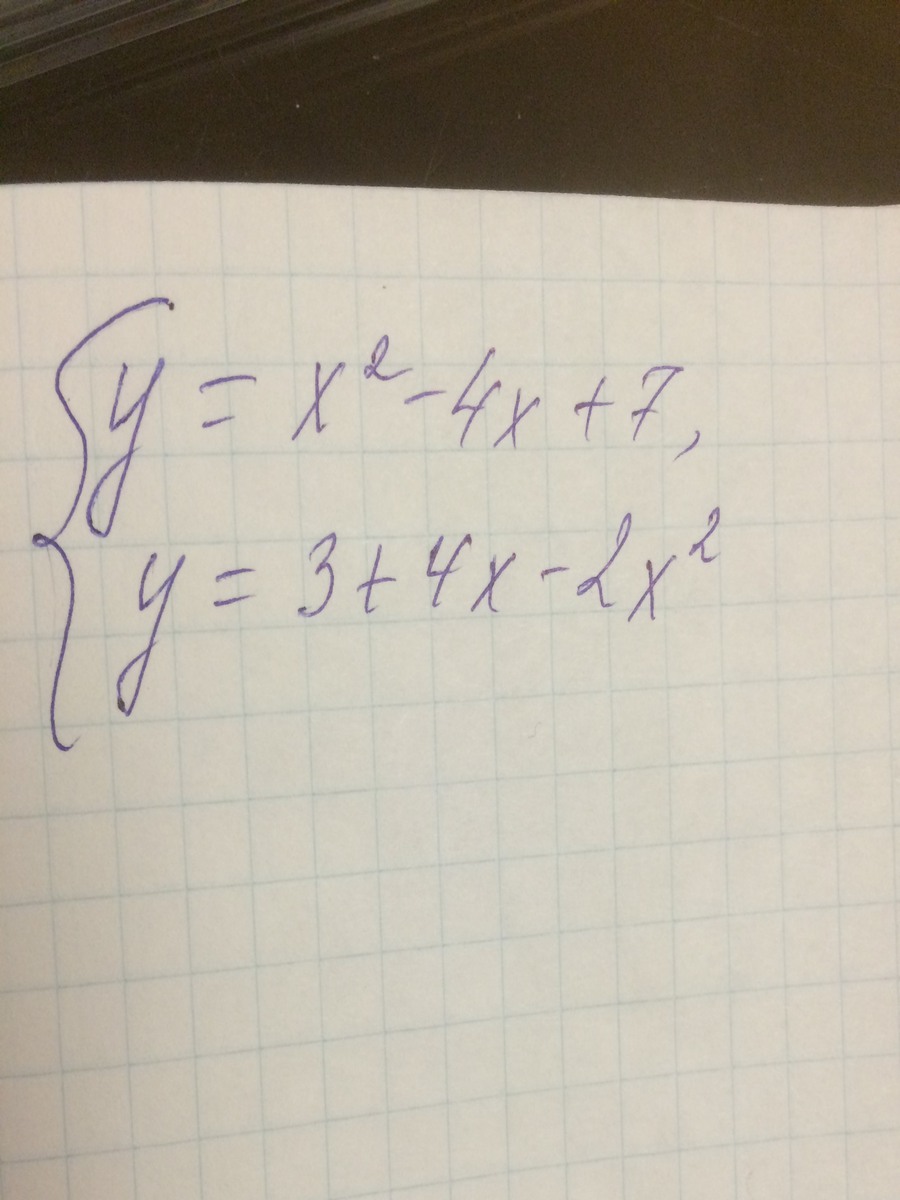 y = x² - 4x + 7,
y = 3 + 4x - 2x²